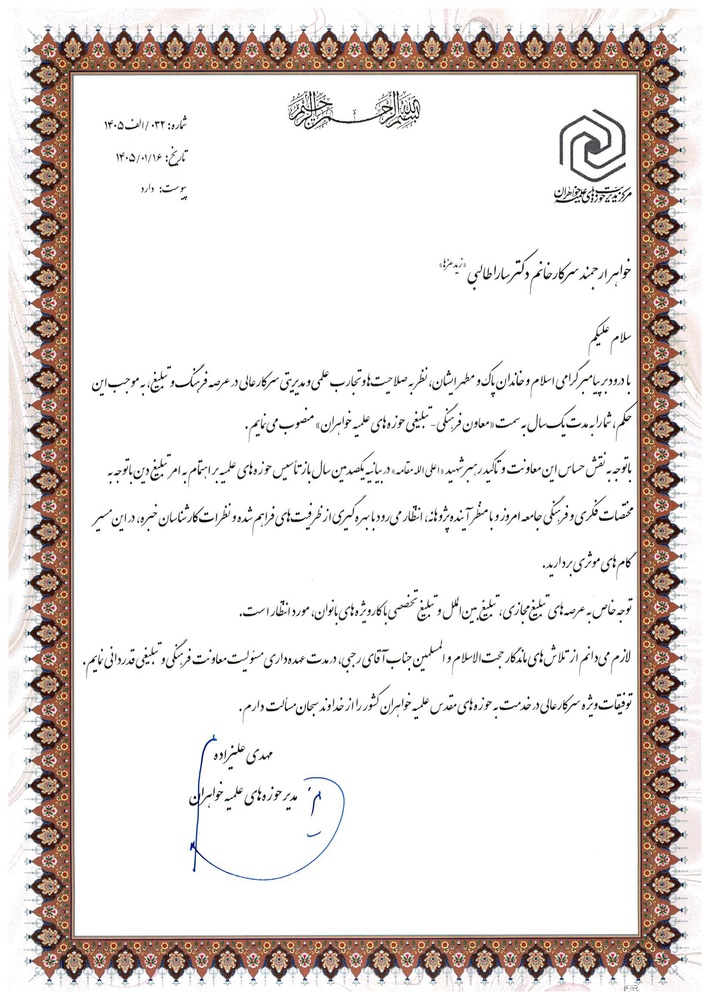 بسم الله الرحمن الرحیم
شماره: ۰۳۲/الف/۱۴۰۵
تاریخ: ۱۴۰۵/۰۱/۱۶
پیوست: دارد
مرکز مدیریت حوزه‌های علمیه خواهران
خواهر ارجمند سرکار خانم دکتر سارا طالبی «زید عزها»
سلام علیکم
با درود بر پیامبر گرامی اسلام و خاندان پاک و مطهر ایشان، نظر به صلاحیت‌ها و تجارب علمی و مدیریتی سرکار عالی در عرصه فرهنگ و تبلیغ، به موجب این
حکم، شما را به مدت یک سال به سمت «معاون فرهنگی - تبلیغی حوزه های علمیه خواهران» منصوب می نمایم.
با توجه به نقش حساس این معاونت و تأکید رهبر شهید «اعلی الله مقامه» در بیانیه یکصدمین سال بازتأسیس حوزه های علمیه بر اهتمام به امر تبلیغ دین با توجه به
مختصات فکری و فرهنگی جامعه امروز و با منظر آینده پژوهانه، انتظار می رود با بهره گیری از ظرفیت های فراهم شده و نظرات کارشناسان خبره، در این مسیر
گام های موثری بردارید.
توجه خاص به عرصه های تبلیغ مجازی، تبلیغ بین الملل و تبلیغ تخصصی با کارویژه های بانوان، مورد انتظار است.
لازم می دانم از تلاش های ماندگار حجت الاسلام و المسلمین جناب آقای رجبی، در مدت عهده داری مسئولیت معاونت فرهنگی و تبلیغی قدردانی نمایم.
توفیقات ویژه سرکار عالی در خدمت به حوزه های مقدس علمیه خواهران کشور را از خداوند سبحان مسألت دارم.
مهدی علیزاده
مدیر حوزه های علمیه خواهران